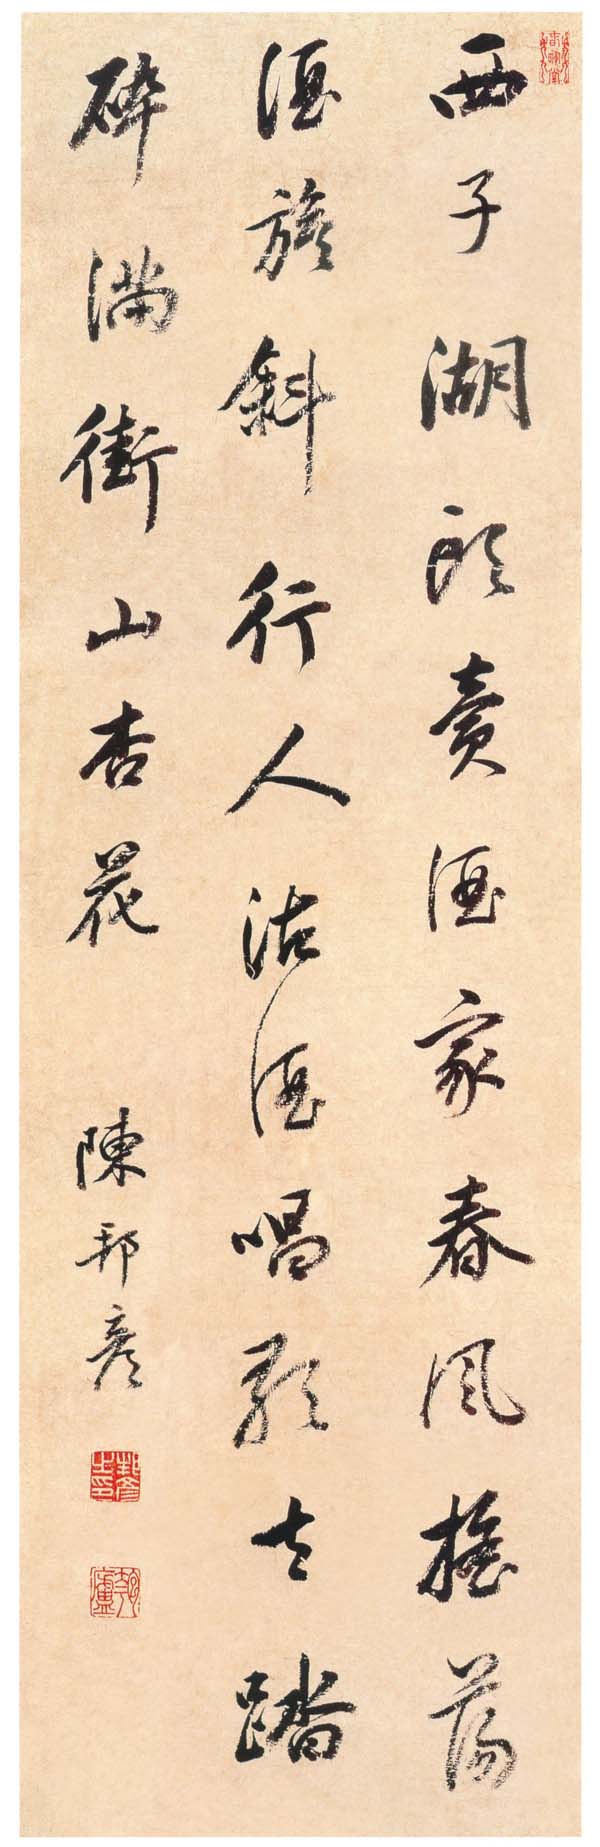 西子湖頭賣酒家春風摇蕩
酒旗斜行人沽酒唱歌去踏
碎滿街山杏花
陳邦彥